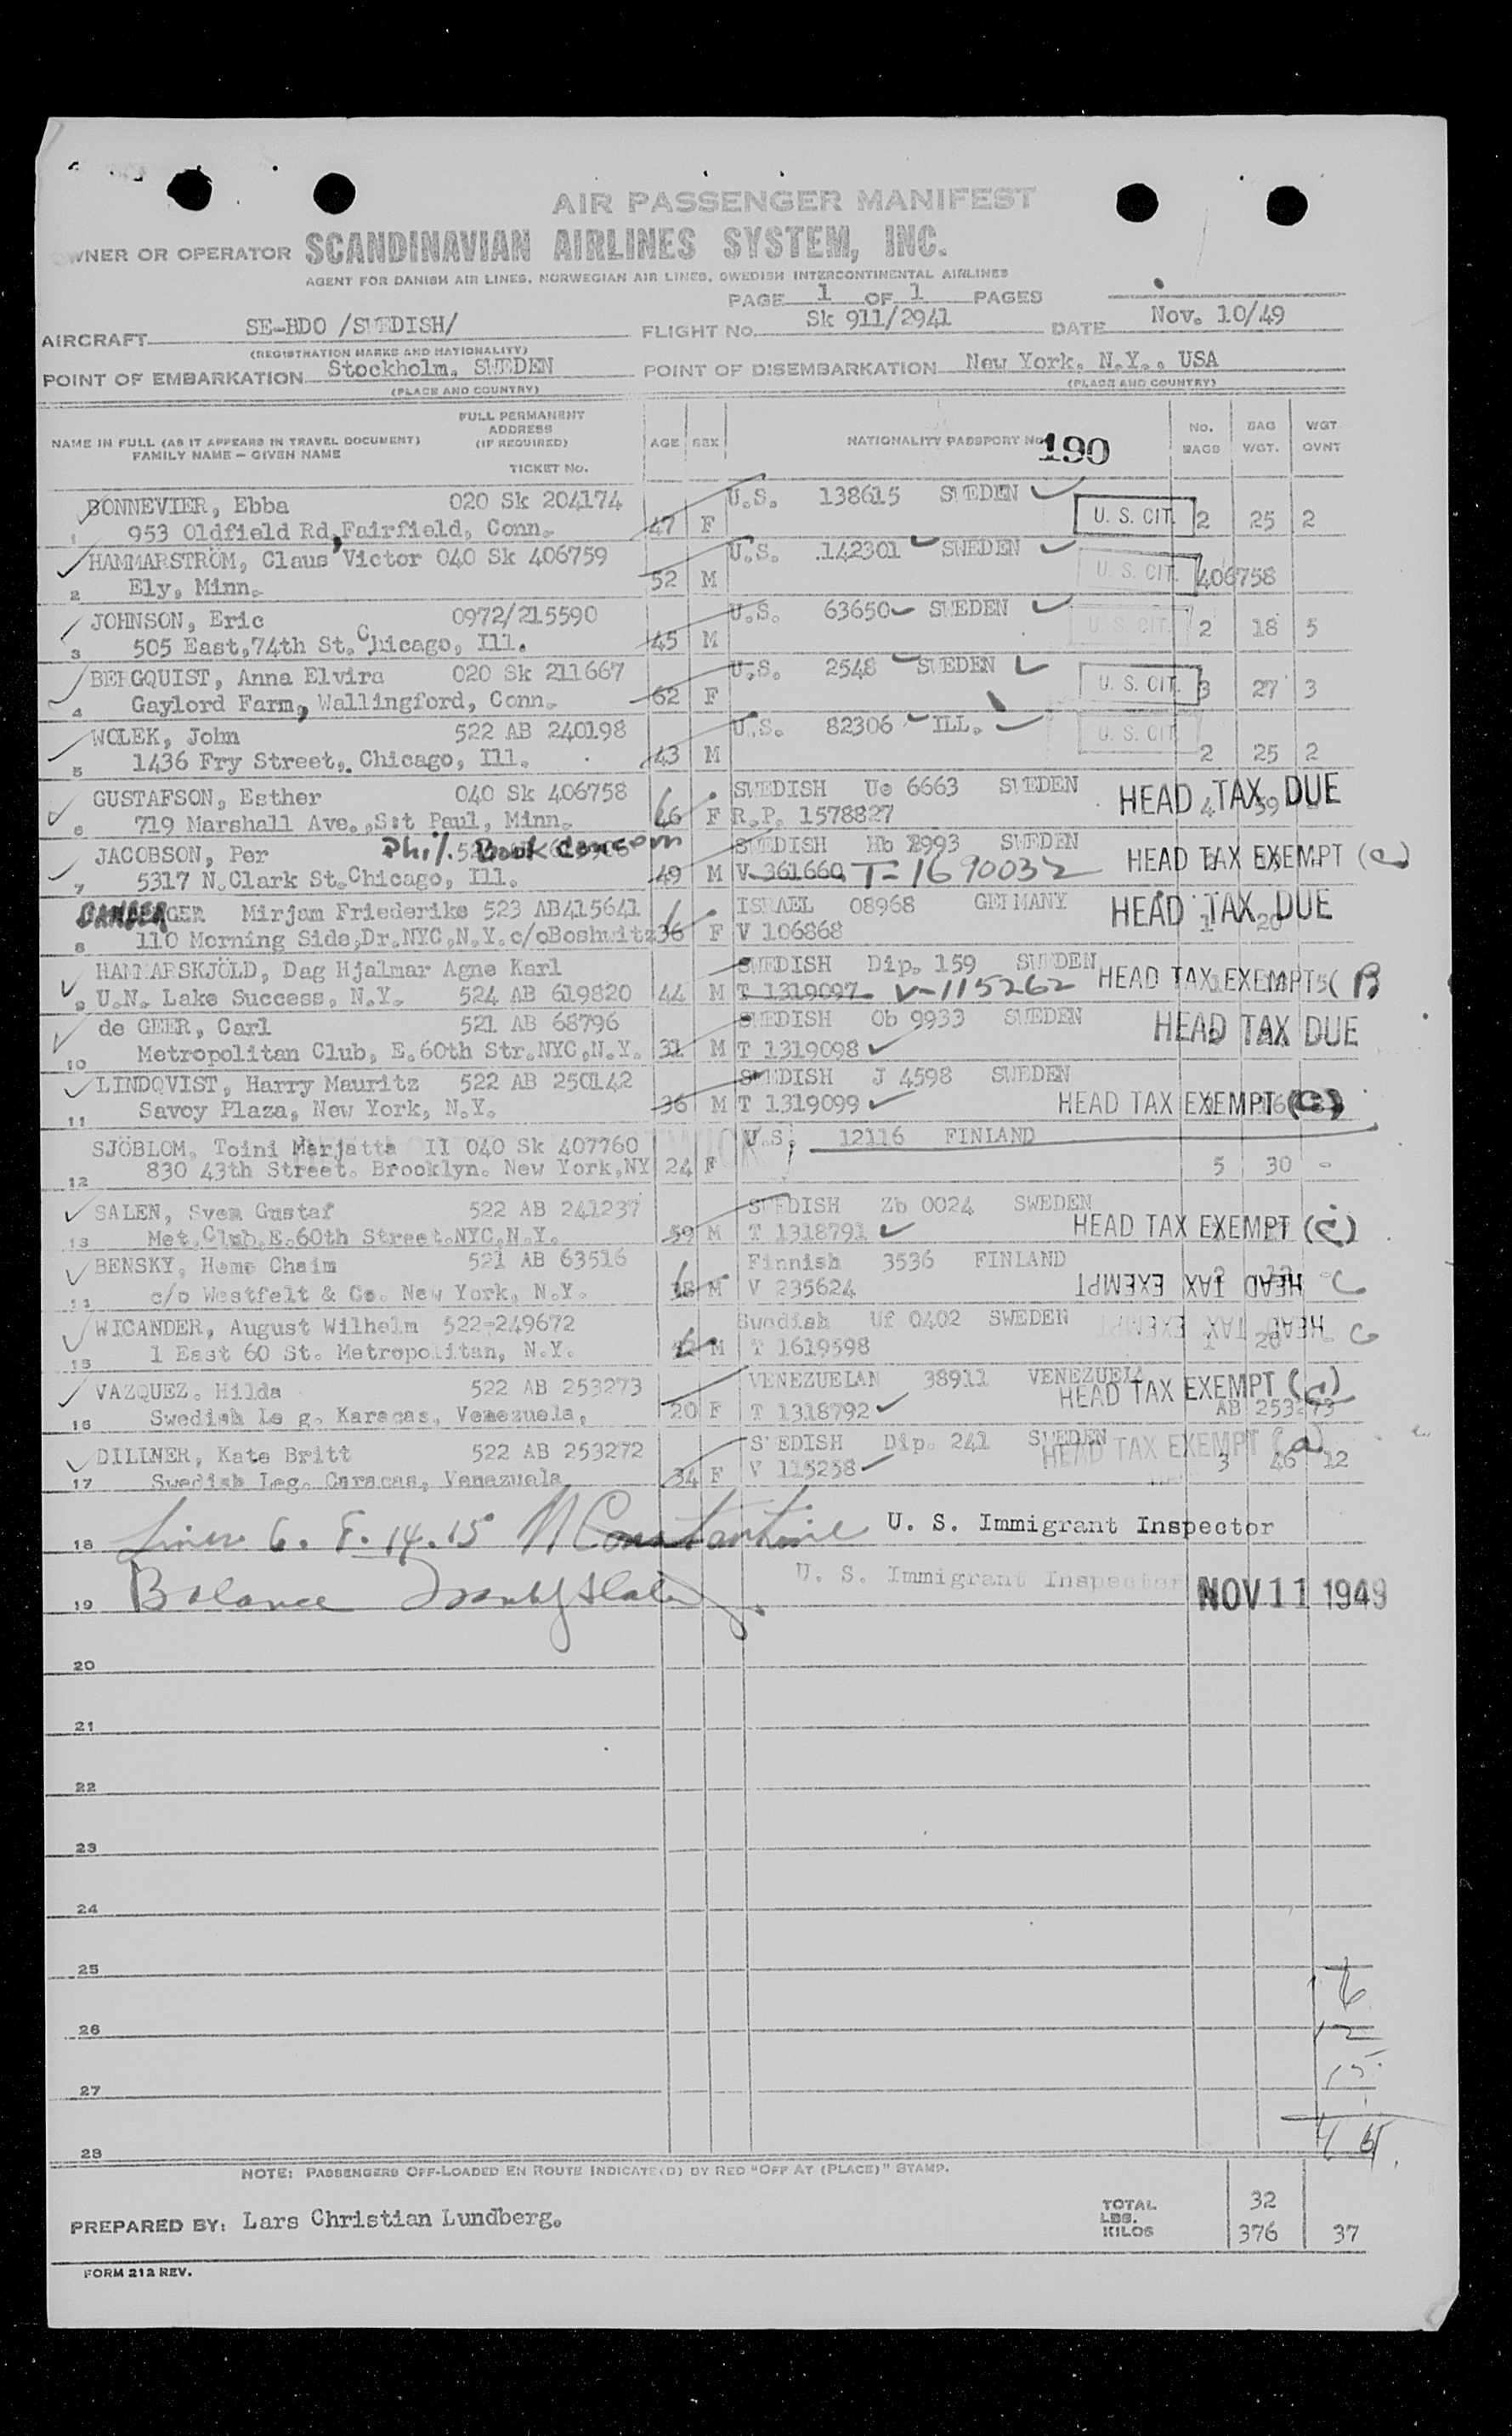 AIR PASSENGER MANIFEST
OWNER OR OPERATOR SCANDINAVIAN AIRLINES SYSTEM, INC.
AGENT FOR DANISH AIR LINES, NORWEGIAN AIR LINES, SWEDISH INTERCONTINENTAL AIRLINES
PAGE 1 OF 1 PAGES
AIRCRAFT SE-BDO /SWEDISH/ FLIGHT No. Sk 911/2941 DATE Nov. 10/49
(REGISTRATION MARKS AND NATIONALITY)
POINT OF EMBARKATION Stockholm, SWEDEN POINT OF DISEMBARKATION New York, N.Y., USA
(PLACE AND COUNTRY) (PLACE AND COUNTRY)
NAME IN FULL (AS IT APPEARS IN TRAVEL DOCUMENT) FAMILY NAME – GIVEN NAME FULL PERMANENT ADDRESS (IF REQUIRED) TICKET No. AGE SEX NATIONALITY PASSPORT No. 190 No. BAGS BAG WGT. WGT OVNT
BONNEVIER, Ebba 020 Sk 204174 U.S. 138615 SWEDEN
1 953 Oldfield Rd, Fairfield, Conn. 47 F U. S. CIT. 2 25 2
HAMMARSTRÖM, Claus Victor 040 Sk 406759 U.S. 142301 SWEDEN
2 Ely, Minn. 52 M U. S. CIT. 406758
JOHNSON, Eric 0972/215590 U.S. 63650 SWEDEN
3 505 East,74th St. Chicago, Ill. 45 M U S CIT. 2 18 5
BERGQUIST, Anna Elvira 020 Sk 211667 U.S. 2548 SWEDEN
4 Gaylord Farm, Wallingford, Conn. 62 F U. S. CIT. 3 27 3
WOLEK, John 522 AB 240198 U.S. 82306 ILL.
5 1436 Fry Street, Chicago, Ill. 43 M U. S. CIT. 2 25 2
GUSTAFSON, Esther 040 Sk 406758 SWEDISH Ue 6663 SWEDEN HEAD TAX DUE
6 719 Marshall Ave.,St Paul, Minn. 46 F R.P. 1578827 4 59
JACOBSON, Per Phil. Book concern SWEDISH Hb 2993 SWEDEN HEAD TAX EXEMPT (c)
7 5317 N.Clark St.Chicago, Ill. 49 M V 361660 T-1690032
GER Mirjam Friederike 523 AB415641 ISRAEL 08968 GERMANY HEAD TAX DUE
8 110 Morning Side,Dr.NYC,N.Y.c/oBoshwitz 36 F V 106868 1 20
HAMMARSKJÖLD, Dag Hjalmar Agne Karl SWEDISH Dip. 159 SWEDEN HEAD TAX EXEMPT (B
9 U.N. Lake Success, N.Y. 524 AB 619820 44 M T 1319097 V-115262
de GEER, Carl 521 AB 68796 SWEDISH Ob 9933 SWEDEN HEAD TAX DUE
10 Metropolitan Club, E.60th Str.NYC,N.Y. 31 M T 1319098
LINDQVIST, Harry Mauritz 522 AB 250142 SWEDISH J 4598 SWEDEN
11 Savoy Plaza, New York, N.Y. 36 M T 1319099 HEAD TAX EXEMPT (C)
SJÖBLOM, Toini Marjatta II 040 Sk 407760 U.S. 12116 FINLAND
12 830 43th Street. Brooklyn. New York,NY 24 F 5 30 -
SALEN, Sven Gustaf 522 AB 241237 SWEDISH Zb 0024 SWEDEN
13 Met.Club,E.60th Street.NYC,N.Y. 59 M T 1318791 HEAD TAX EXEMPT (c)
BENSKY, Hemo Chaim 521 AB 63516 Finnish 3536 FINLAND
14 c/o Westfelt & Co. New York, N.Y. 38 M V 235624 HEAD TAX EXEMPT C
WICANDER, August Wilhelm 522-249672 Swedish Uf 0402 SWEDEN HEAD TAX EXEMPT C
15 1 East 60 St. Metropolitan, N.Y. M T 1619598 1 20
VAZQUEZ. Hilda 522 AB 253273 VENEZUELAN 38911 VENEZUELA HEAD TAX EXEMPT (a)
16 Swedish Le g. Karacas, Venezuela, 20 F T 1318792 AB 253273
DILLNER, Kate Britt 522 AB 253272 SWEDISH Dip. 241 SWEDEN HEAD TAX EXEMPT (a)
17 Swedish Leg. Caracas, Venezuela 34 F V 115258 3 46 12
18 Lines 6. 8. 14. 15 N Constantine U. S. Immigrant Inspector
19 Balance U. S. Immigrant Inspector NOV 11 1949
20
21
22
23
24
25
26
27
28
NOTE: PASSENGERS OFF-LOADED EN ROUTE INDICATE(D) BY RED "OFF AT (PLACE)" STAMP.
PREPARED BY: Lars Christian Lundberg. TOTAL 32
LBS.
KILOS 376 37
FORM 212 REV.